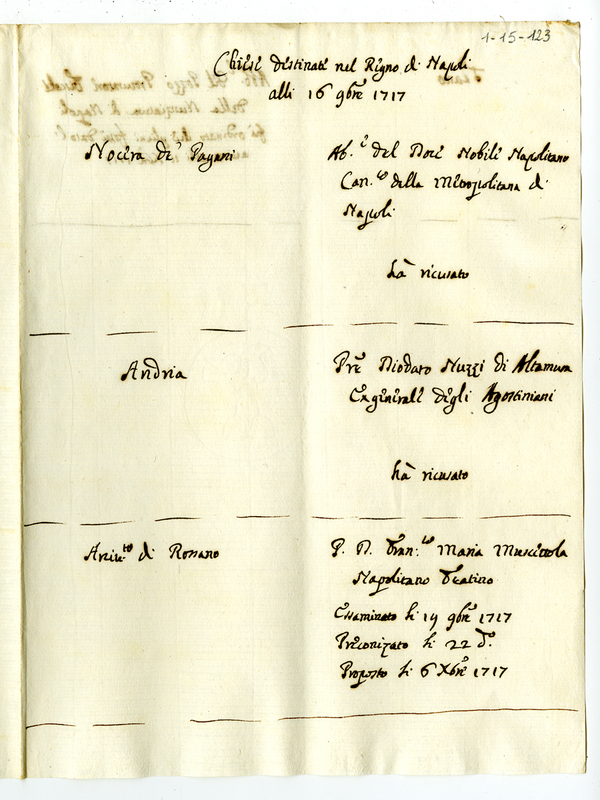 1-15-123
Chiese destinate nel Regno di Napoli
alli 16 9bre 1717
Nocera de' Pagani
Ab.e del Doce Nobile Napolitano
Can.co della Metropolitana di
Napoli
hà ricusato
Andria
Pre Diodato Nuzzi di Altamura
Exgenerale degli Agostiniani
hà ricusato
Arciv.to di Rossano
P. D. Fran.co Maria Muscettola
Napolitano Teatino
Essaminato li 19 9bre 1717
Preconizato li 22 do.
Proposto li 6 Xbre 1717